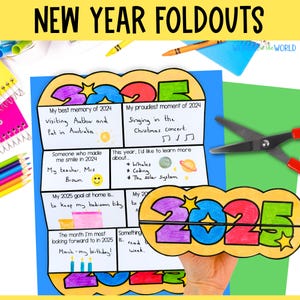 NEW YEAR FOLDOUTS
2025
My best memory of 2024
Visiting Author and
Pat in Australia
My proudest moment of 2024
Singing in the
Christmas concert.
Someone who made
me smile in 2024
My teacher, Mrs
Brown
This year, I'd like to learn more
about...
Whales
Coding
The solar system
My 2025 goal at home is..
to keep my bedroom tidy
My
to
The month I'm most
looking forward to in 2025
March - my birthday!
Something
is..
read
week.
2025
2025